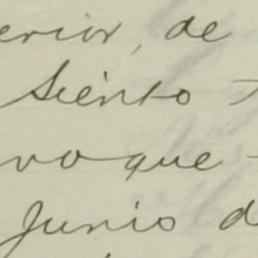 erior, de
Siento
voque
Junio d